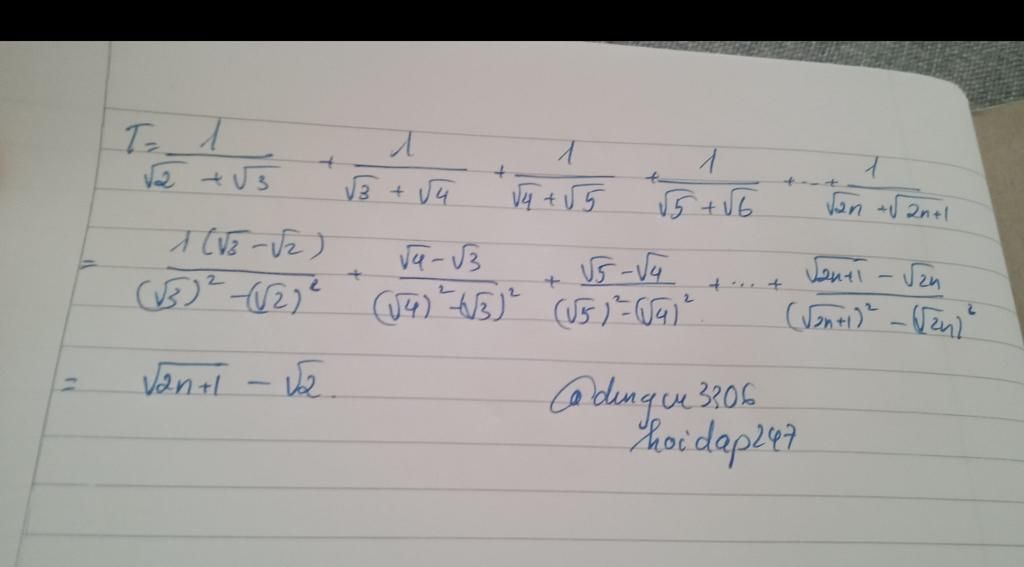 T = 1/(√2 + √3) + 1/(√3 + √4) + 1/(√4 + √5) + 1/(√5 + √6) + ... + 1/(√2n + √2n+1)
= 1(√3 - √2)/((√3)² - (√2)²) + (√4 - √3)/((√4)² - (√3)²) + (√5 - √4)/((√5)² - (√4)²) + ... + (√2n+1 - √2n)/((√2n+1)² - (√2n)²)
= √2n+1 - √2.
@dungcu3306
hoidap247